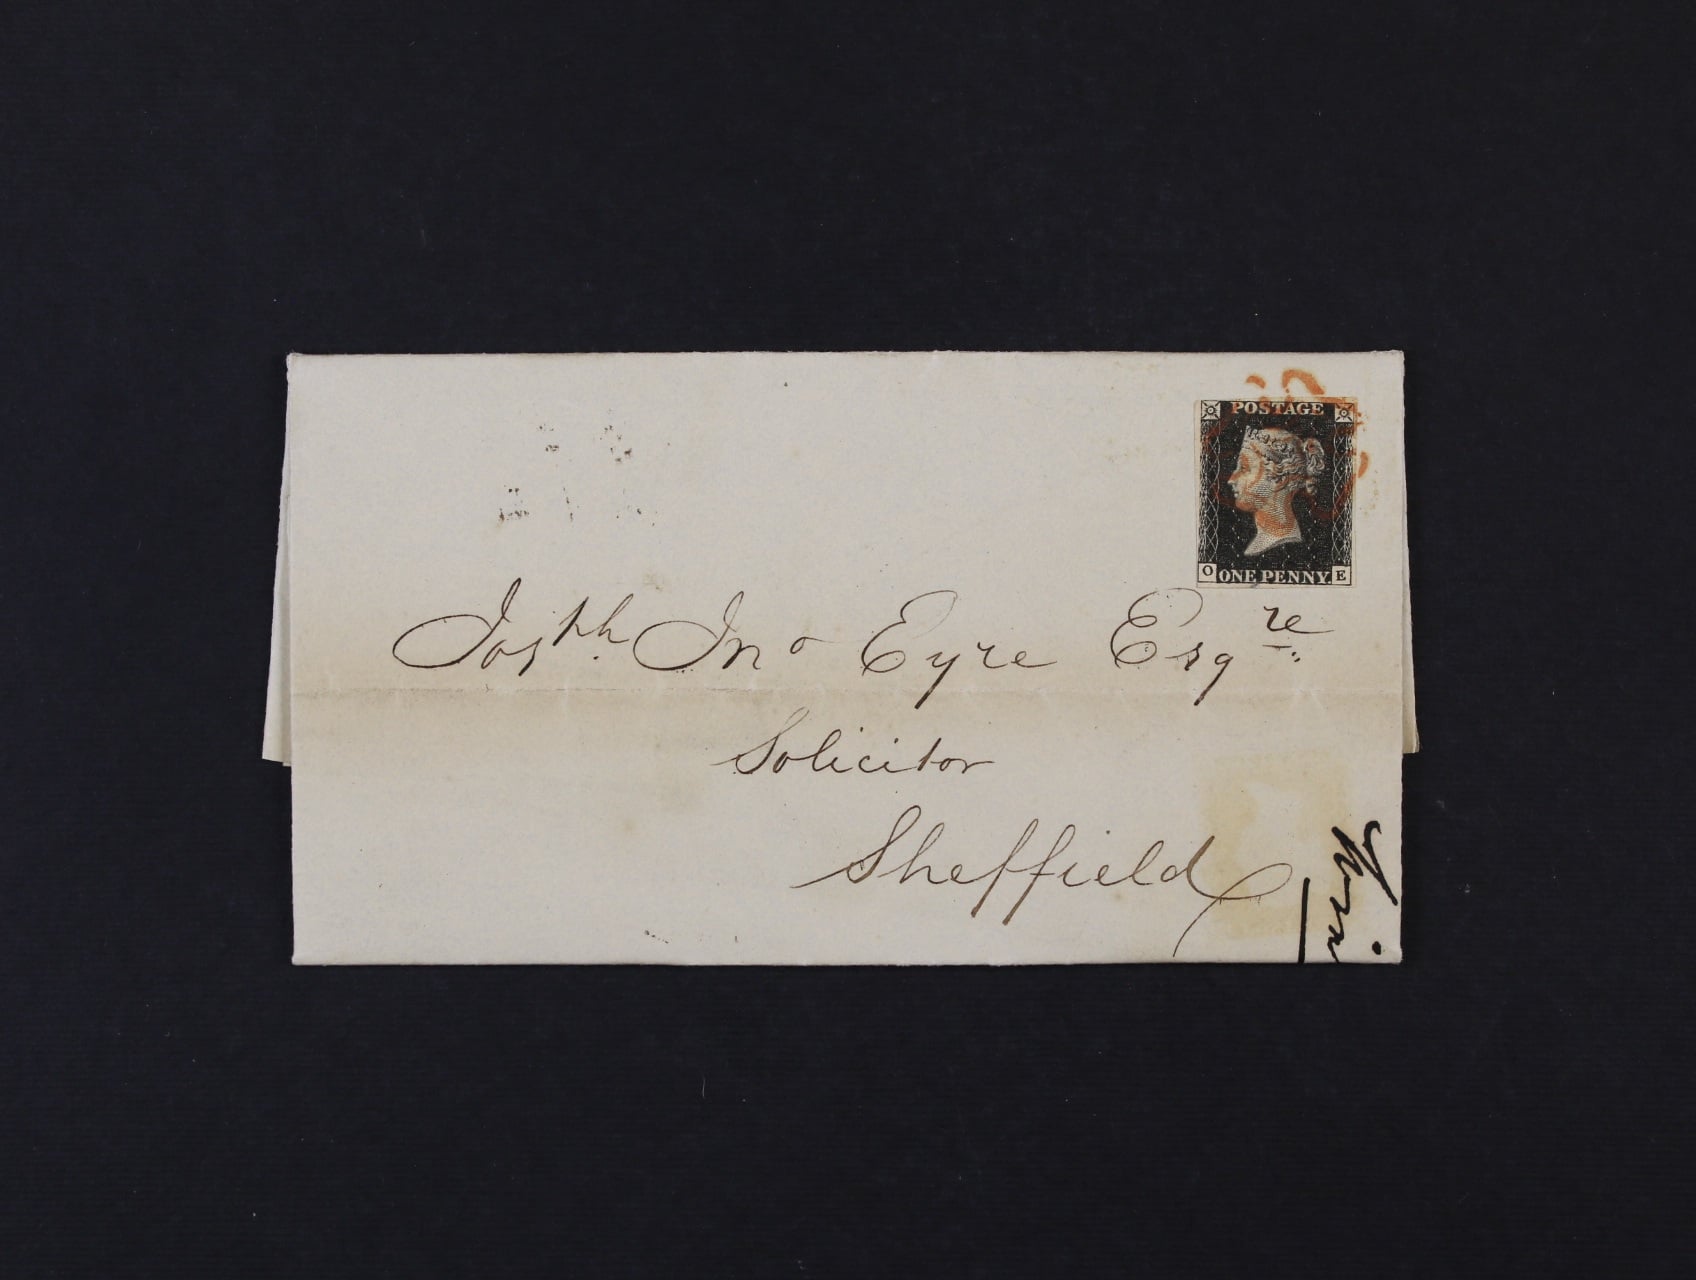 POSTAGE
O ONE PENNY E
Josph. Jno Eyre Esqre
Solicitor
Sheffield